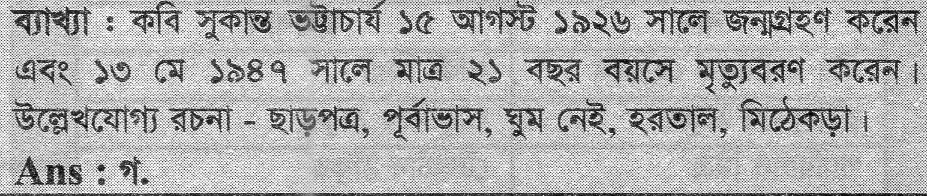 ব্যাখ্যা : কবি সুকান্ত ভট্টাচার্য ১৫ আগস্ট ১৯২৬ সালে জন্মগ্রহণ করেন
এবং ১৩ মে ১৯৪৭ সালে মাত্র ২১ বছর বয়সে মৃত্যুবরণ করেন।
উল্লেখযোগ্য রচনা - ছাড়পত্র, পূর্বাভাস, ঘুম নেই, হরতাল, মিঠেকড়া।
Ans : গ.